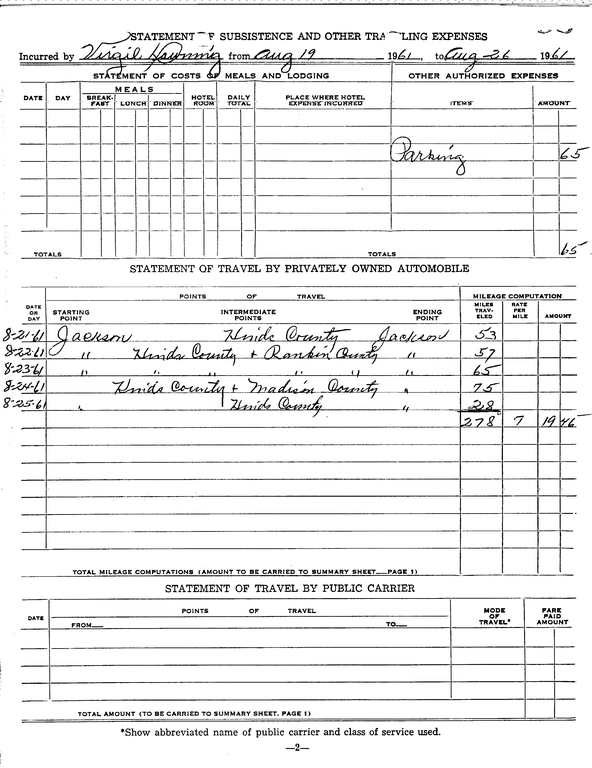 STATEMENT F SUBSISTENCE AND OTHER TRA LING EXPENSES
Incurred by Virgil from Aug 19 1961, to Aug 26 1961
STATEMENT OF COSTS OF MEALS AND LODGING OTHER AUTHORIZED EXPENSES
DATE DAY MEALS BREAK-FAST LUNCH DINNER HOTEL ROOM DAILY TOTAL PLACE WHERE HOTEL EXPENSE INCURRED ITEMS AMOUNT
Parking 65
TOTALS TOTALS 65
STATEMENT OF TRAVEL BY PRIVATELY OWNED AUTOMOBILE
POINTS OF TRAVEL MILEAGE COMPUTATION
DATE OR DAY STARTING POINT INTERMEDIATE POINTS ENDING POINT MILES TRAV-ELED RATE PER MILE AMOUNT
8-21-61 Jackson Hinds County Jackson 53
8-22-61 " Hinds County + Rankin County " 57
8-23-61 " " " " " 65
8-24-61 Hinds County + Madison County " 75
8-25-61 " Hinds County " 28
278 7 19 46
TOTAL MILEAGE COMPUTATIONS (AMOUNT TO BE CARRIED TO SUMMARY SHEET__PAGE 1)
STATEMENT OF TRAVEL BY PUBLIC CARRIER
DATE POINTS OF TRAVEL MODE OF TRAVEL* FARE PAID AMOUNT
FROM__ TO__
TOTAL AMOUNT (TO BE CARRIED TO SUMMARY SHEET, PAGE 1)
*Show abbreviated name of public carrier and class of service used.
—2—